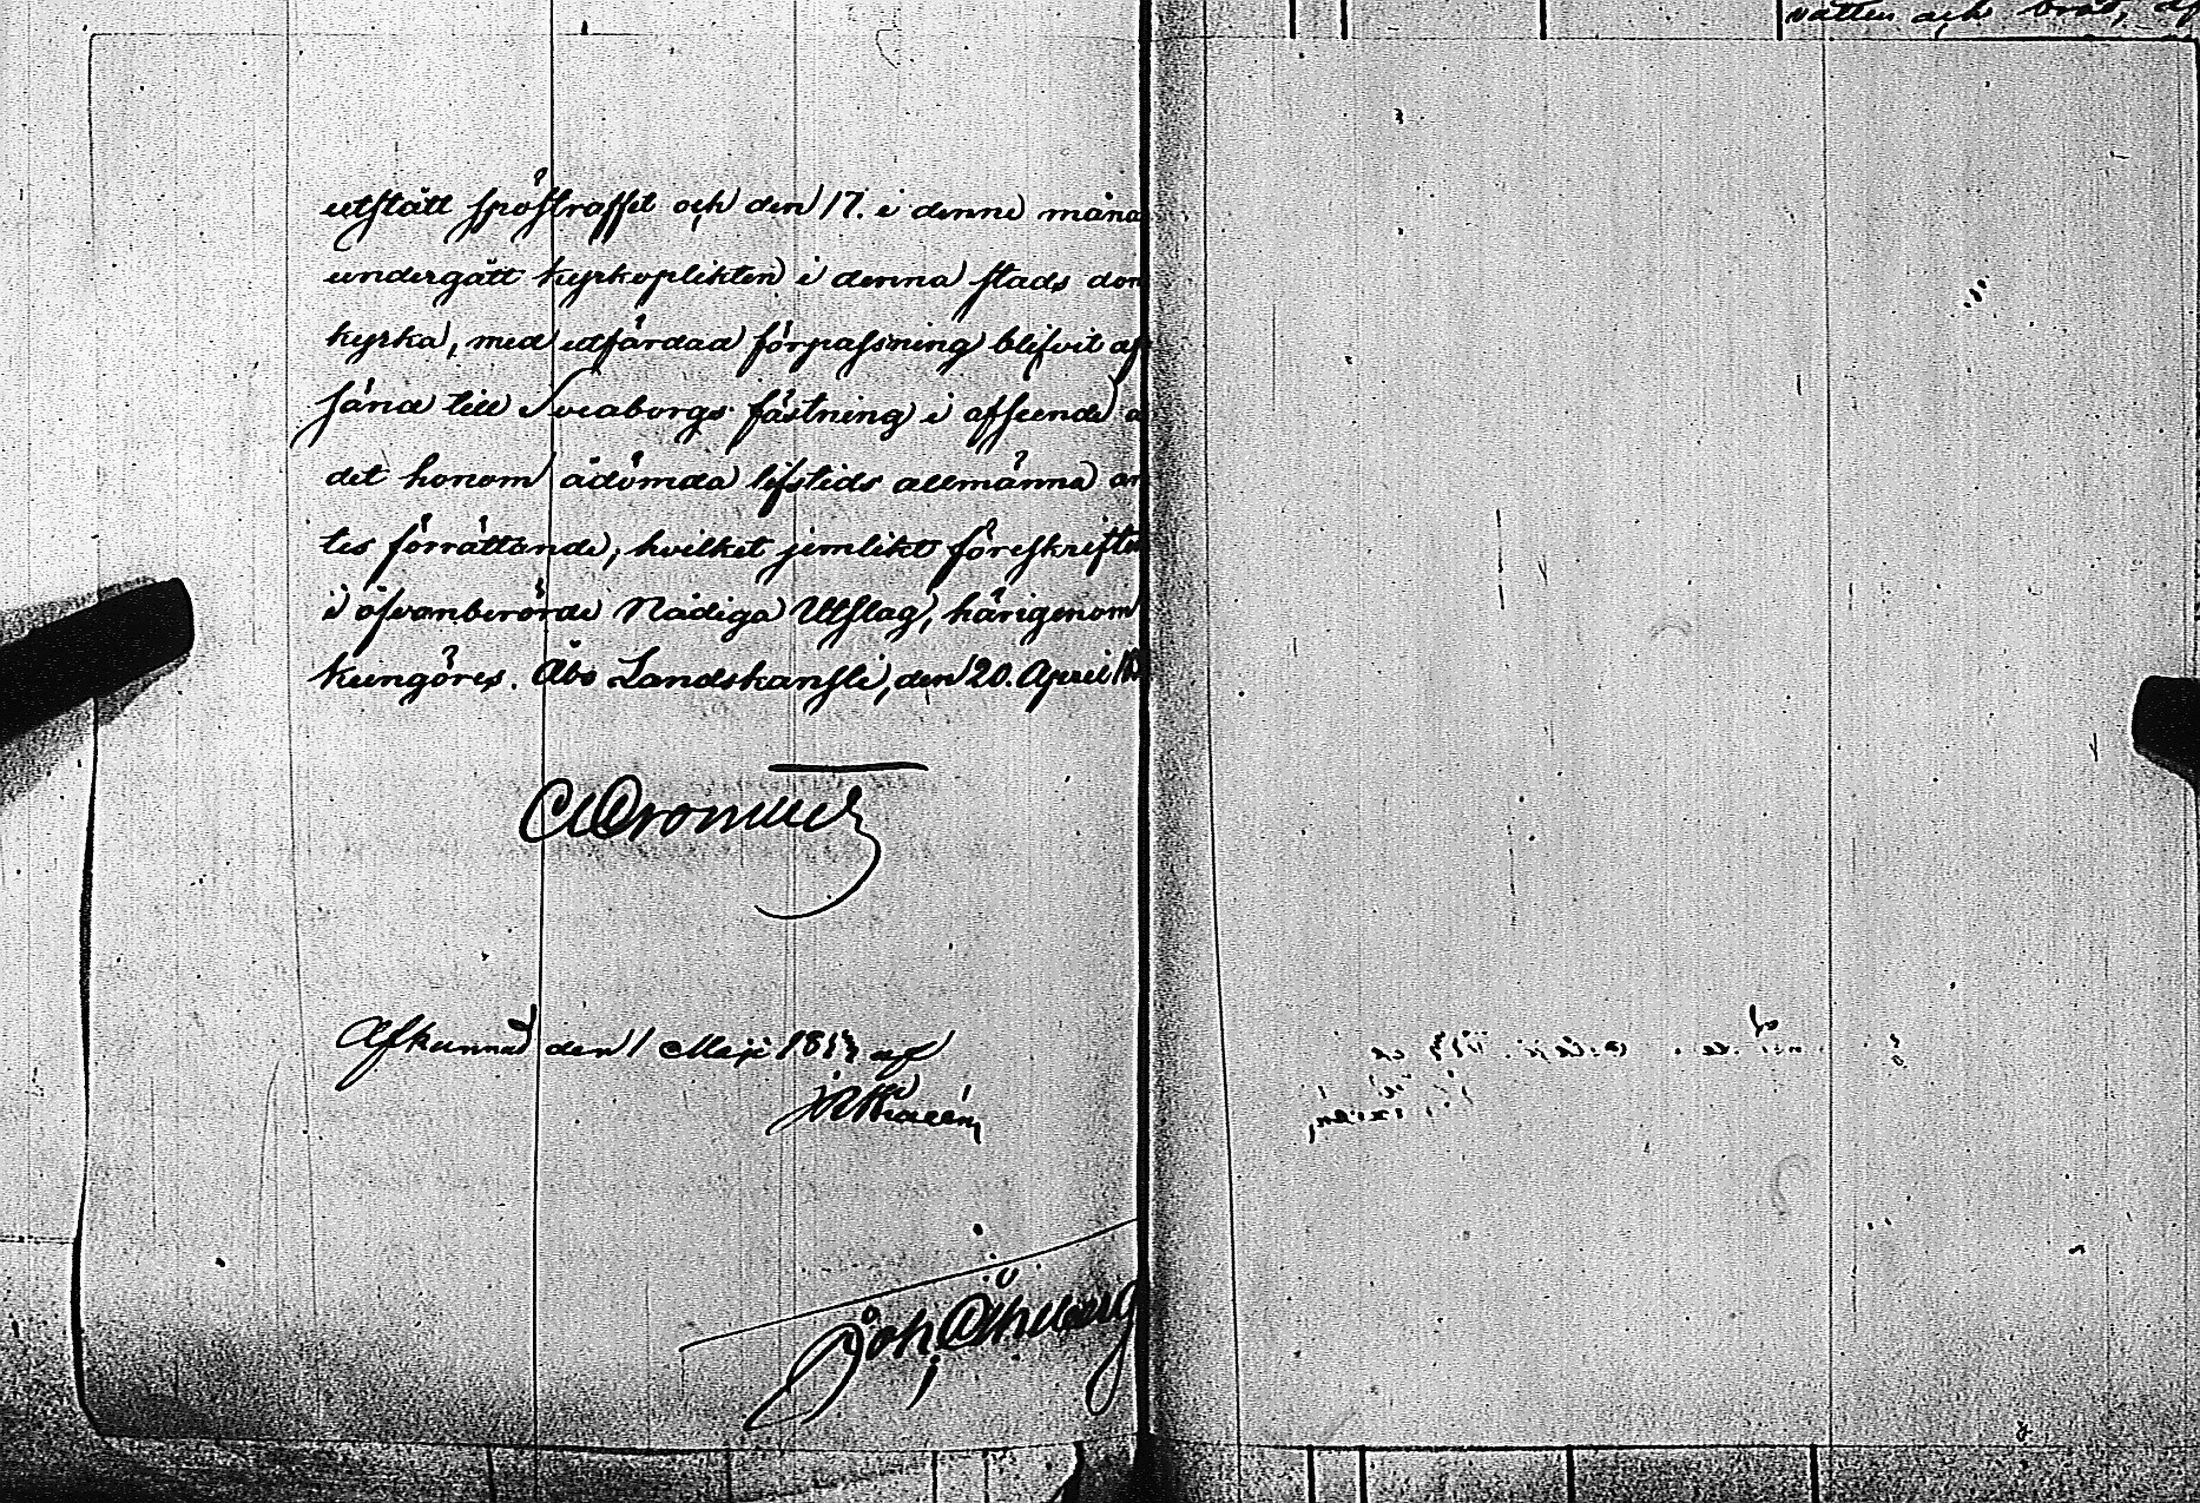 vatten och bröd, af
utstått spöstraffet och den 17. i denne måna
undergått kyrkoplikten i denna stads dom
kyrka, med utfärdad förpassning blifvit af
färid till Sveaborgs fästning i afseende å
det honom ådömda lifstids allmänna ar
tes förrättande, hvilket jemlikt föreskriften
i ofvanberörde Nådiga Utslag, härigenom
kungöres. Åbo Landskansli, den 20. April 18
Cronstedt
Afkunnad den 1 Maji 1853 af
Joh. Öhberg